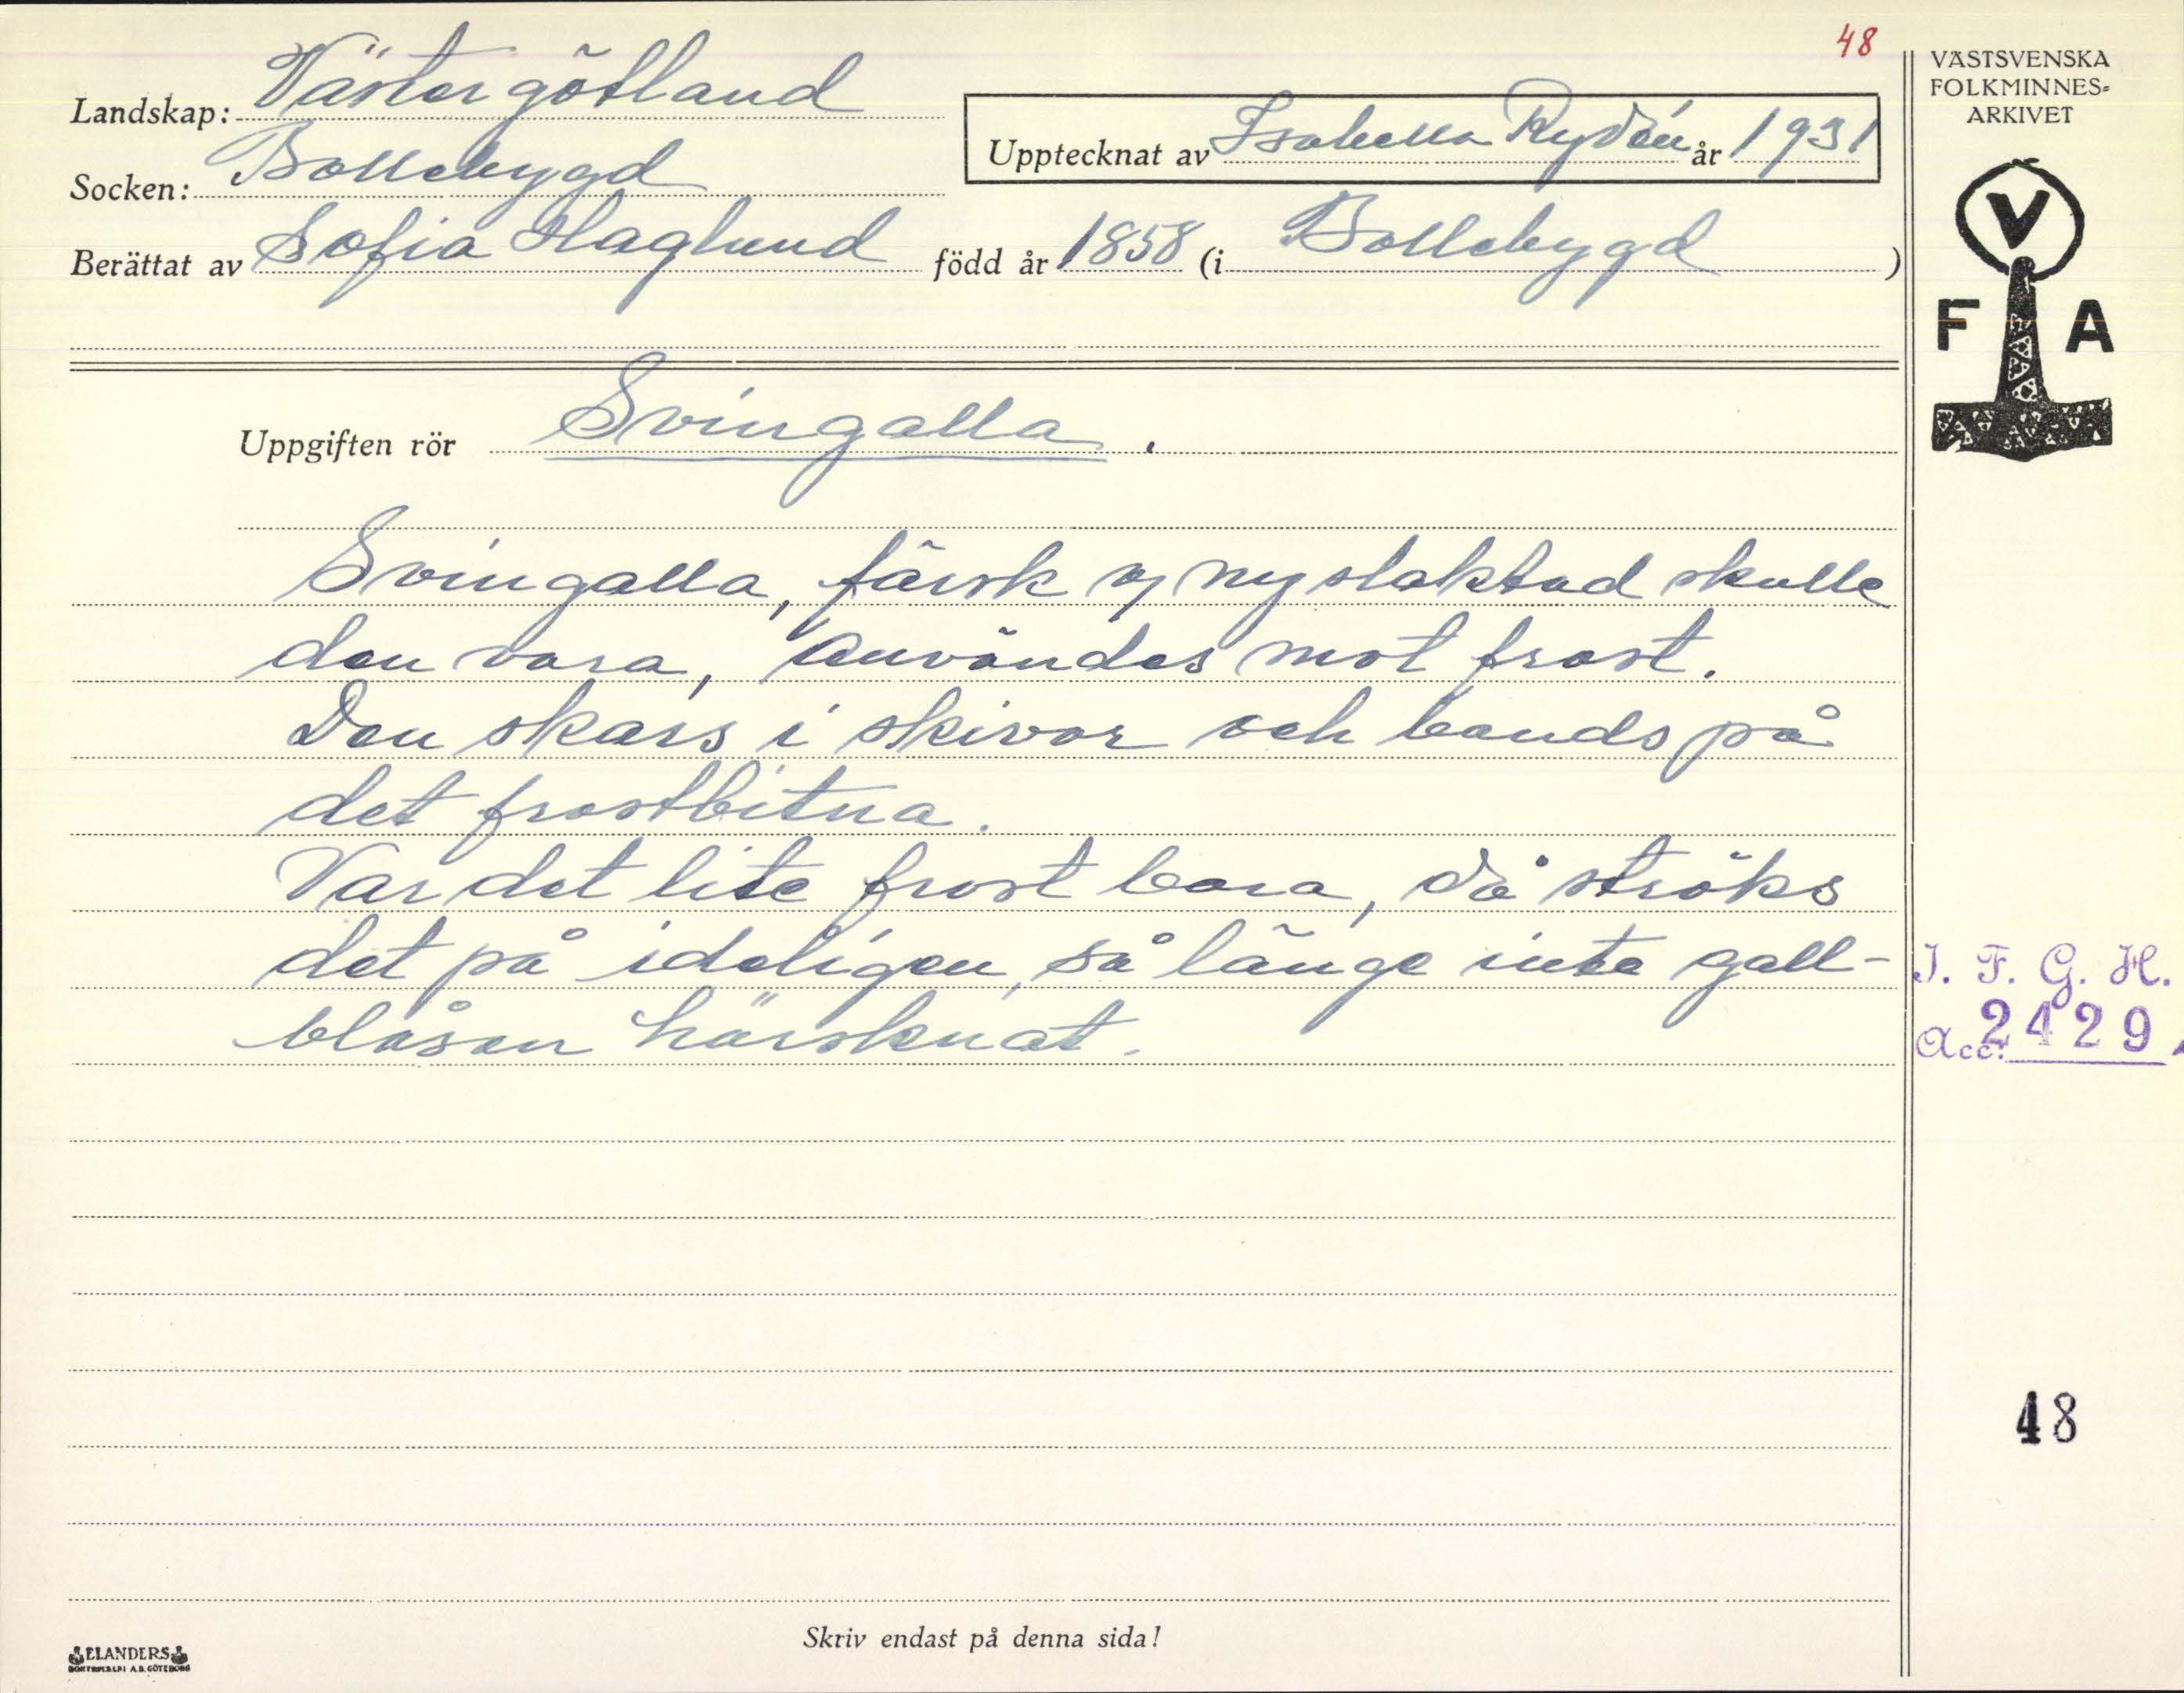 48
VÄSTSVENSKA
FOLKMINNES=
ARKIVET
Landskap: Västergötland
Upptecknat av Isabella Rydén år 1931
Socken: Bollebygd
Berättat av Sofia Haglund född år 1858 (i Bollebygd)
V
F A
Uppgiften rör Svingalla.
Svingalla, färsk o nyslaktad skulle
den vara, användes mot frost.
Den skars i skivor och bands på
det frostbitna.
Var det lite frost bara, då ströks
det på ideligen, så länge inte gall-
blåsan härsknat.
I. F. G. H.
Acc. 2429
48
Skriv endast på denna sida!
ELANDERS
BOKTRYCKERI A.B. GÖTEBORG